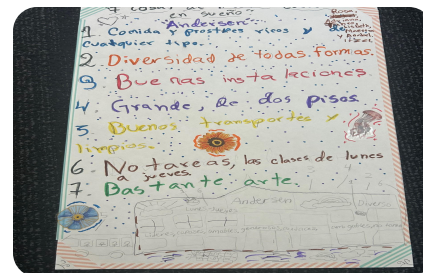 7 cosas
en sueño
Andersen
Rosa,
Adriana,
1 Comida y prostres ricos y de
cualquier tipo.
2 Diversidad de todas formas.
3 Buenas instalaciones
4 Grande, de dos pisos
5 Buenos transportes y
limpios.
6 No tareas, las clases de lunes
a jueves
7 Bastante arte.
Andersen